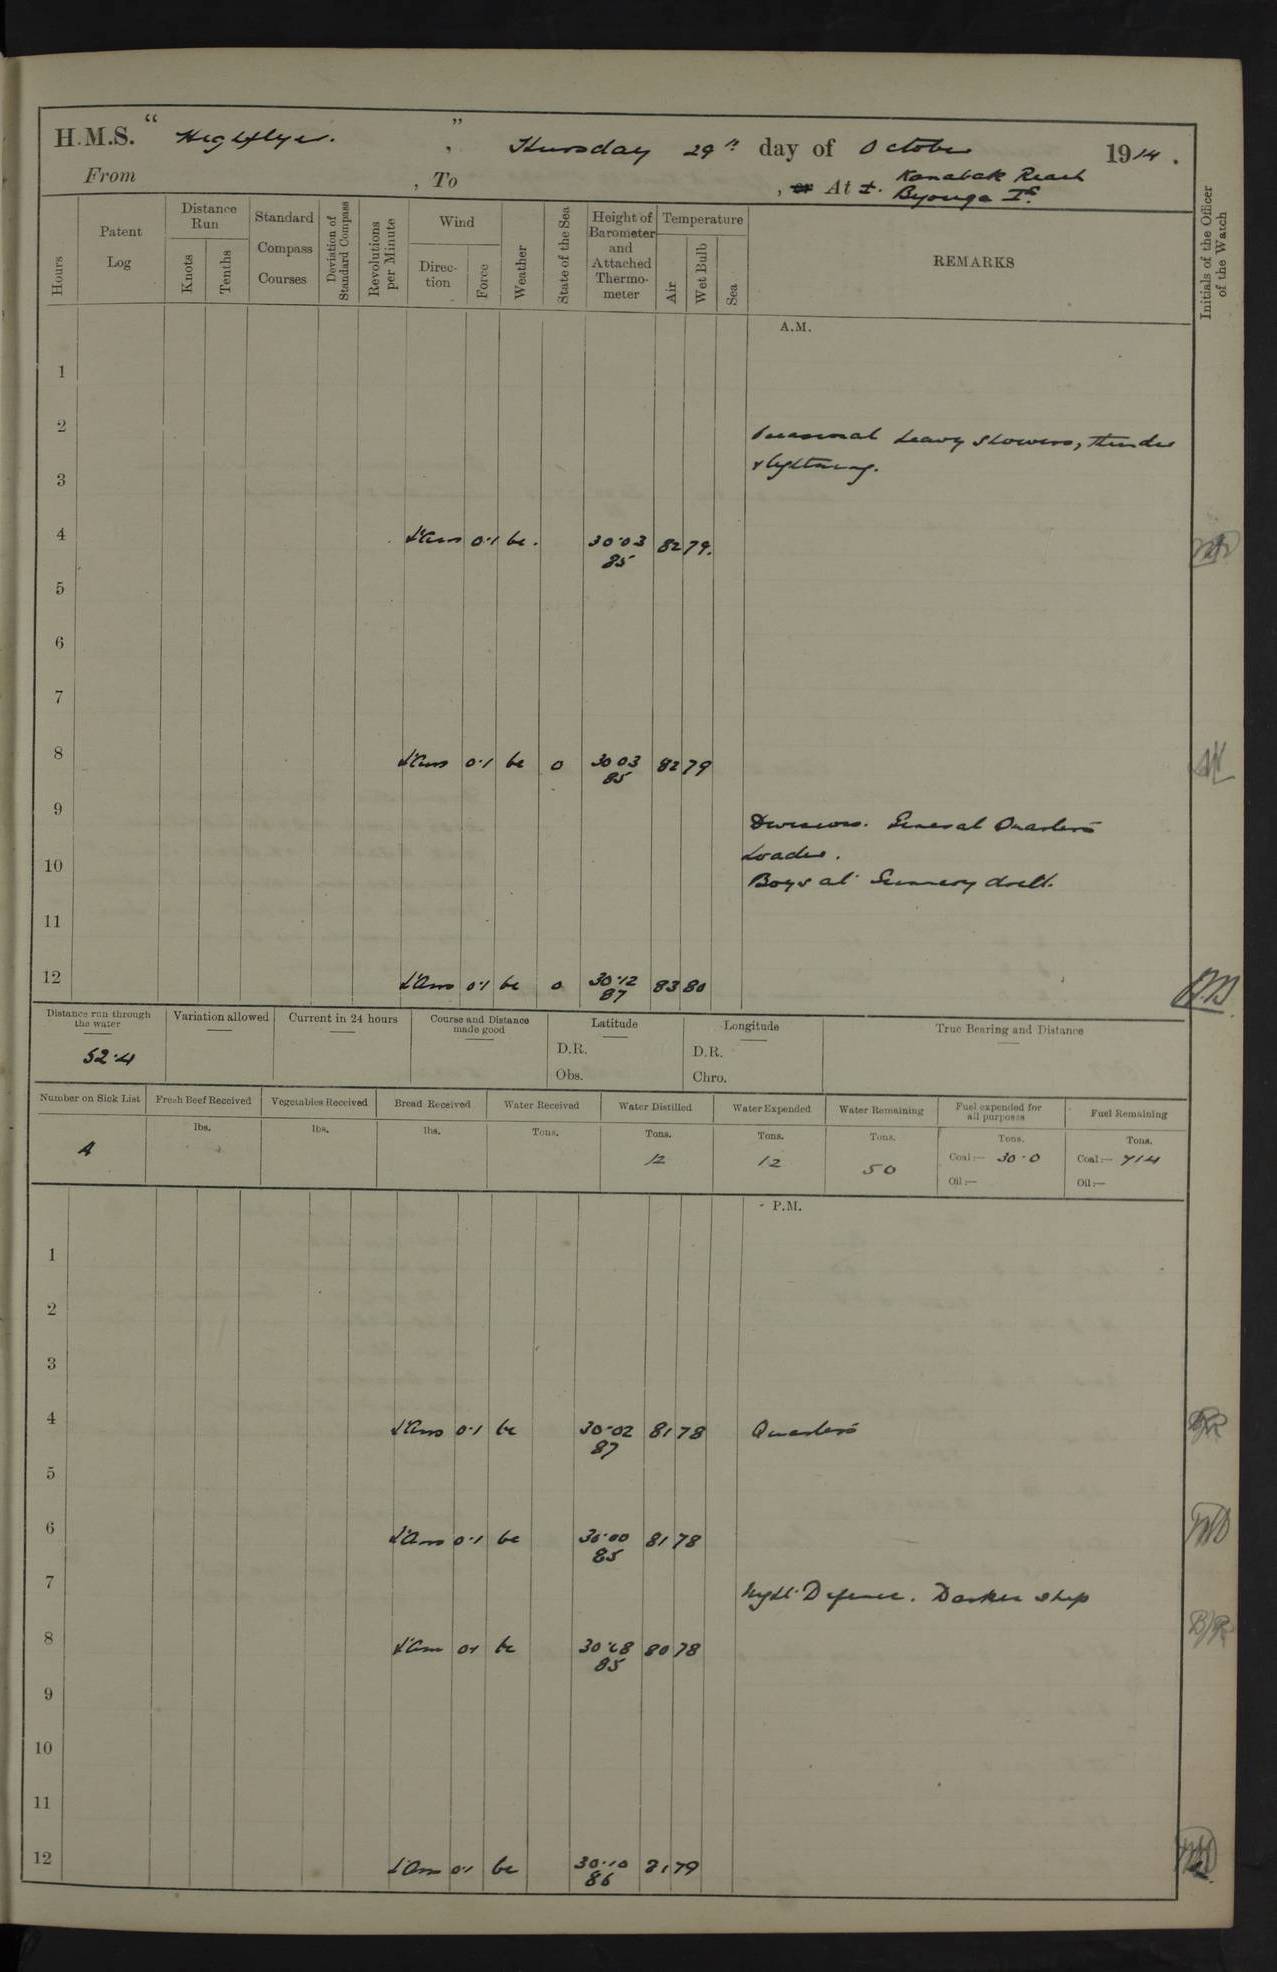 H.M.S. " Highflyer. ", Thursday 29th day of October 1914.
From , To , or At ⚓. Kanabak Reach
Byouga Is.
Hours
Patent Log
Distance Run
Knots
Tenths
Standard Compass Courses
Deviation of Standard Compass
Revolutions per Minute
Wind
Direction
Force
Weather
State of the Sea
Height of Barometer and Attached Thermometer
Temperature
Air
Wet Bulb
Sea
REMARKS
Initials of the Officer of the Watch
A.M.
1
2
Occasional heavy showers, thunder
& lightning.
3
4 L'Airs 0.1 bc. 30.03 82 79.
85
5
6
7
8 L'Airs 0.1 bc 0 30 03 82 79
85
9
Divisions. General Quarters
Loader.
10
Boys at Gunnery drill.
11
12 L'Airs 0.1 bc 0 30.12 83 80
87
Distance run through the water
52.4
Variation allowed
Current in 24 hours
Course and Distance made good
Latitude
D.R.
Obs.
Longitude
D.R.
Chro.
True Bearing and Distance
Number on Sick List
4
Fresh Beef Received
lbs.
Vegetables Received
lbs.
Bread Received
lbs.
Water Received
Tons.
Water Distilled
Tons.
12
Water Expended
Tons.
12
Water Remaining
Tons.
50
Fuel expended for all purposes
Tons.
Coal:— 30.0
Oil:—
Fuel Remaining
Tons.
Coal:— 714
Oil:—
P.M.
1
2
3
4 L'Airs 0.1 bc 30.02 81 78 Quarters
87
5
6 L'Airs 0.1 bc 30.00 81 78
85
7
Night Defence. Darken ship
8 L'Airs 0.1 bc 80 78
85
9
10
11
12 L'Airs 0.1 bc 30.10 81 79
86